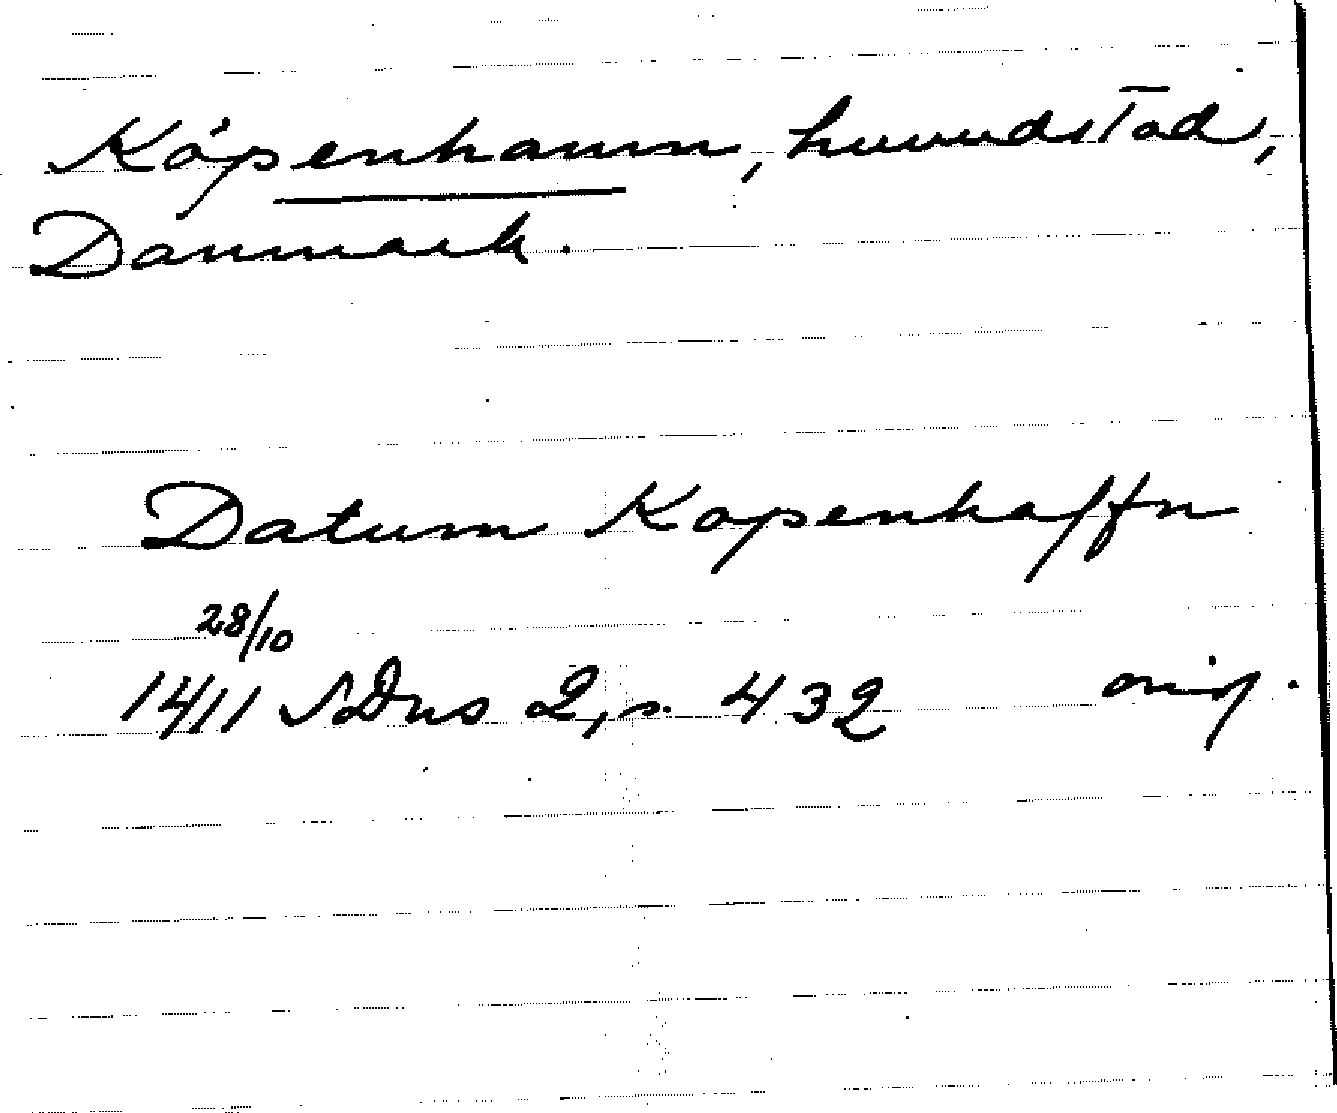 Köpenhamn, huvudstad,
Danmark.
Datum Kopenhaffn
28/10
1411 SDns 2, s. 432 orig.